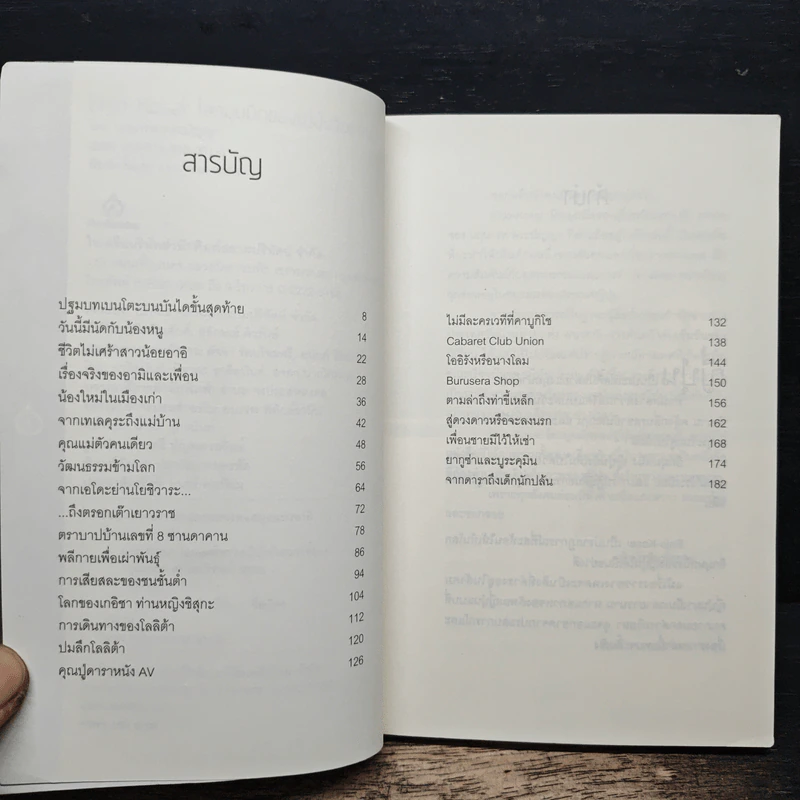 สารบัญ
ปฐมบทเบนโตะบนบันไดขั้นสุดท้าย 8
วันนี้มีนัดกับน้องหนู 14
ชีวิตไม่เศร้าสาวน้อยอาอิ 22
เรื่องจริงของอามิและเพื่อน 28
น้องใหม่ในเมืองเก่า 36
จากเทเลคุระถึงแม่บ้าน 42
คุณแม่ตัวคนเดียว 48
วัฒนธรรมข้ามโลก 56
จากเอโดะย่านโยชิวาระ... 64
...ถึงตรอกเต๊าเยาวราช 72
ตราบาปบ้านเลขที่ 8 ซานดาคาน 78
พลีกายเพื่อเผ่าพันธุ์ 86
การเสียสละของชนชั้นต่ำ 94
โลกของเกอิชา ท่านหญิงชิสุกะ 104
การเดินทางของโลลิต้า 112
ปมลึกโลลิต้า 120
คุณปู่ดาราหนัง AV 126
ไม่มีละครเวทีที่คาบูกิโช 132
Cabaret Club Union 138
โออิรังหรือนางโลม 144
Burusera Shop 150
ตามล่าถึงท่าขี้เหล็ก 156
สู่ดวงดาวหรือจะลงนรก 162
เพื่อนชายมีไว้ให้เช่า 168
ยากูซ่าและบูระคุมิน 174
จากดาราถึงเด็กนักปล้น 182